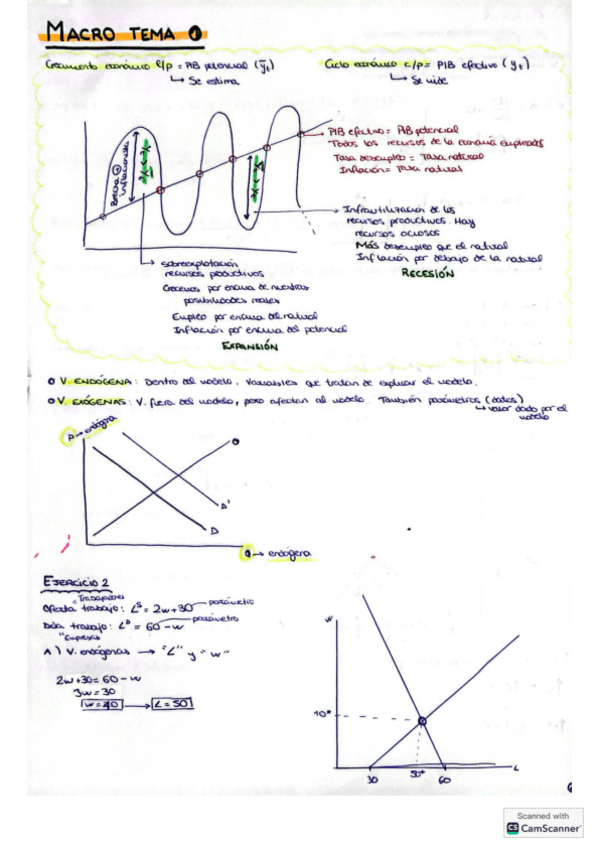 MACRO TEMA 1
Crecimiento económico l/p = PIB potencial (ȳt)
↳ Se estima
Ciclo económico c/p = PIB efectivo (yt)
↳ Se mide
PIB efectivo = PIB potencial
Todos los recursos de la economía empleados
Tasa desempleo = Tasa natural
Inflación = Tasa natural
Brecha ⊕
inflacionista
→ Infrautilización de los
recursos productivos. Hay
recursos ociosos
Más desempleo que el natural
Inflación por debajo de la natural
RECESIÓN
↳ sobreexplotación
recursos productivos
Crecemos por encima de nuestras
posibilidades reales
Empleo por encima del natural
Inflación por encima del potencial
EXPANSIÓN
O V. ENDÓGENA: Dentro del modelo. Variables que tratan de explicar el modelo.
O V. EXÓGENAS: V. fuera del modelo, pero afectan al modelo. También parámetros (datos)
↳ valor dado por el
modelo
P → endógena
O
D'
D
Q → endógena
EJERCICIO 2
Trabajadores
Oferta trabajo: Lˢ = 2w+30 — parámetro
Dda trabajo: Lᴰ = 60 - w — parámetro
Empresas
A) V. endógenas → "L" y "w"
2w+30 = 60 - w
3w = 30
L = 50
W
10*
30
50*
60
L
Scanned with
CS CamScanner